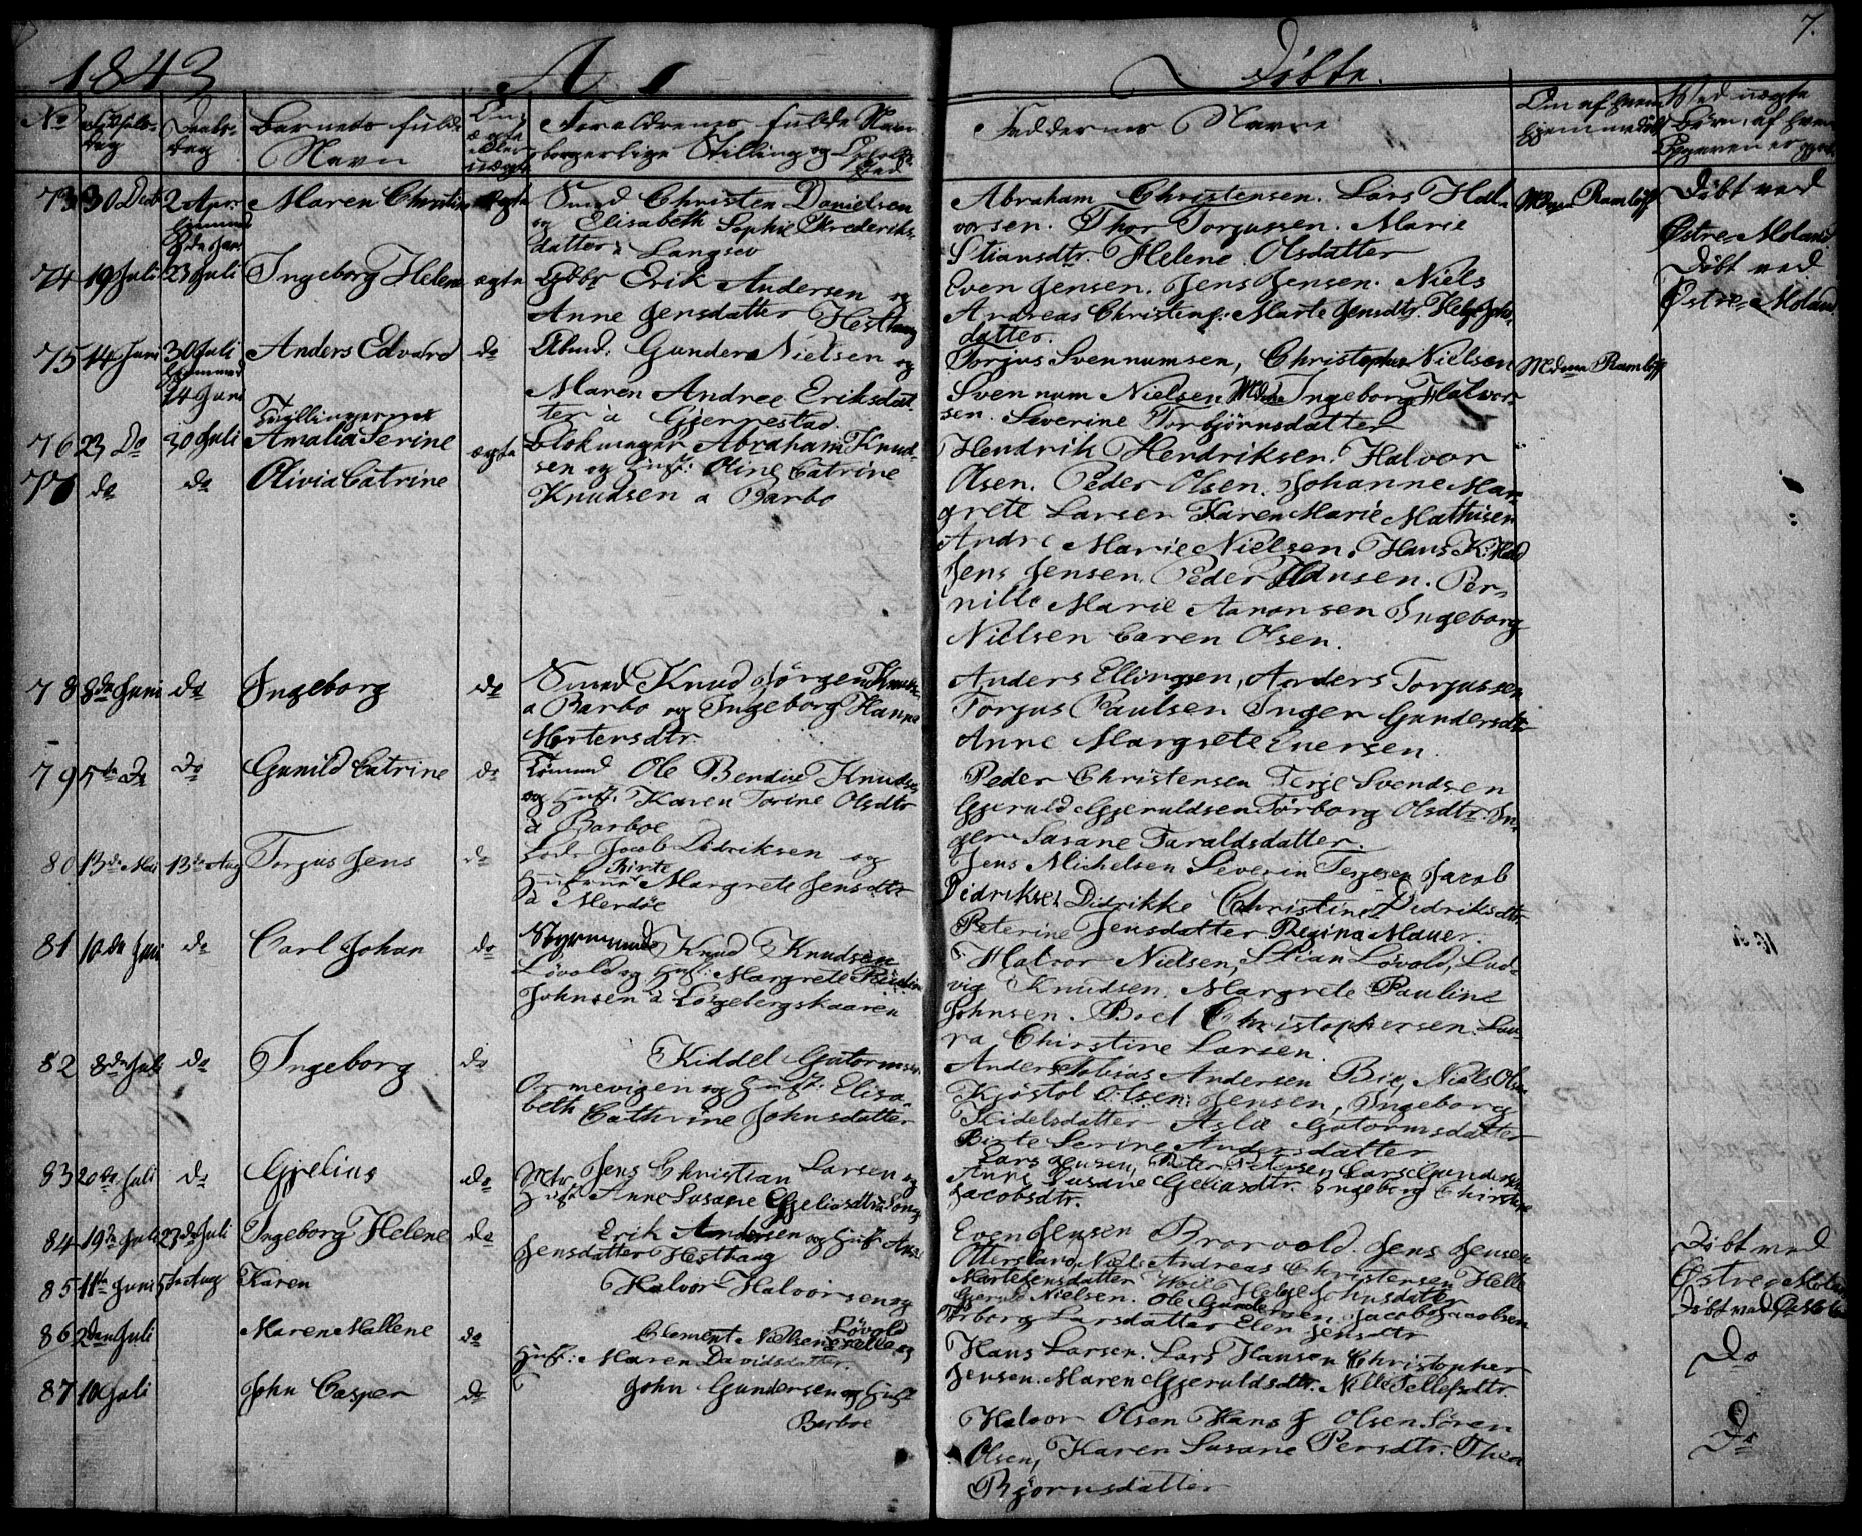 1843
Døbte.
7.
No
Daabs-
dag
Barnets fulde
Navn
Om
ægte
eller
uægte
Forældrenes fulde Navn
borgerlige Stilling og Opholds
sted
Faddernes Navne
Om af hvem
hjemmedøbt
Ved uægte
Børn, af hvem
73 30 2 Apr. Maren Christine ægte Smed Christen Danielsen
og Elisabeth Sophie Frederiks-
datter à Langsev
Abraham Christensen. Lars Hal-
vorsen. Thor Torgussen. Marie
Stiansdtr. Helene Olsdatter
Mdm Ramløff
Døbt ved
Østre Moland
74 19 Juli 23 Juli Ingeborg Helene ægte Erik Andersen og
Anne Jensdatter Hesthaug
Even Jensen. Jens Jensen. Niels
Andreas Christens. Marte Jensdtr. Helge Joh-
datter.
Døbt ved
Østre Moland
75 14 Juni 30 Juli Anders Edvard do Gunder Nielsen og
hjemmed
24 Juni
Maren Andree Eriksdat-
ter à Gjerrestad.
Torjus Svennumsen, Christopher Nielsen
Svennum Nielsen Mdm Ingeborg Halvor-
sen. Severine Torbjørnsdatter
Mdm Ramløff
Tvillingerne
76 23 Do 30 Juli Amalia Serine ægte Blokmager Abraham Knud-
sen og Hust: Oline Catrine
Knudsen a Barbo
77 do do Olivia Catrine
Hendrik Hendriksen. Halvor
Olsen. Peder Olsen. Johanne Mar-
grete Larsen Karen Marie Mathisen
Andre Marie Nielsen. Hans K.
Jens Jensen. Peder Hansen. Per-
nille Marie Aaronsen Ingeborg
Nielsen Caren Olsen.
78 8de Juni do Ingeborg do Smed Knud Jørgen
a Barbo og Ingeborg Hanne
Mortensdtr.
Anders Ellingsen, Anders Torjussen
Torjus Paulsen Inger Gundersdtr
Anne Margrete Evensen.
79 5te do do Gunild Catrine do Tømmd Ole Bendix Knudsen
og Hust. Karen Torine Olsdtr
à Barboe
Peder Christensen Terje Svendsen
Gjeruld Gjeruldsen Torborg Olsdtr. In-
ger Susane Taraldsdatter.
80 13de Mai 13de Aug Torjus Jens do Lods Jacob Didriksen og
Birte
Hustrue Margrete Jensdtr
à Merdøe
Jens Michelsen Severin Terjesen Jacob
Didriksen Didrikke Christine Didriksdtr.
Peterine Jensdatter Regina Mauer.
81 10de Juni do Carl Johan do Styrmand Knud Knudsen
Løvold og Hust: Margrete Pauline
Johnsen à Longebergskaaren
Halvor Nielsen, Stian Løvold, Lud-
vig Knudsen. Margrete Pauline
Johnsen. Boel Christophersen. Lau-
ra Christine Larsen.
82 8de Juli do Ingeborg do Kiddel Gutormsen
Ormevigen og Hust. Elisa-
beth Cathrine Johnsdatter
Anders Tobias Andersen Bie, Niels Olsen
Kjøstol Olsen Jensen, Ingeborg
Kidelsdatter Aslu Gutormsdatter
Birte Serine Andersdatter
83 20de Juli do Gjelius do Mtr. Jens Christian Larsen og
Hust Anne Susane Gjeliusdtr à Song
Lars Jensen, Peter Petersen Lars Gundersen
Anne Susane Gjeliusdtr. Ingeborg Christine
Jacobsdtr.
84 19de Juli 23de Juli Ingeborg Helene do Erik Andersen og Hust Anne
Jensdatter Hesthaug
Even Jensen Brorvold. Jens Jensen
Ottersland Niels Andreas Christensen Helle
Marte Jensdatter Helge Johnsdatter
Døbt ved
Østre Moland
85 11te Juni 5te Aug Karen Halvor Halvorsen og
Gjeruld Nielsen. Ole Gundersen. Jacob Jacobsen
Torborg Larsdatter Elen Jensdtr
Døbt ved
86 2den Juli Maren Mallene do Clement Nielsen Løvold og
Hust: Maren Davidsdatter.
Hans Larsen. Lars Hansen Christopher
Jensen. Maren Gjeruldsdtr. Nille Tellefsdtr
Do
87 10 Juli John Casper do John Gundersen og Hust
Barboe
Halvor Olsen Hans J Olsen Søren
Olsen, Karen Susane Persdtr. Thea
Bjørnsdatter
Do